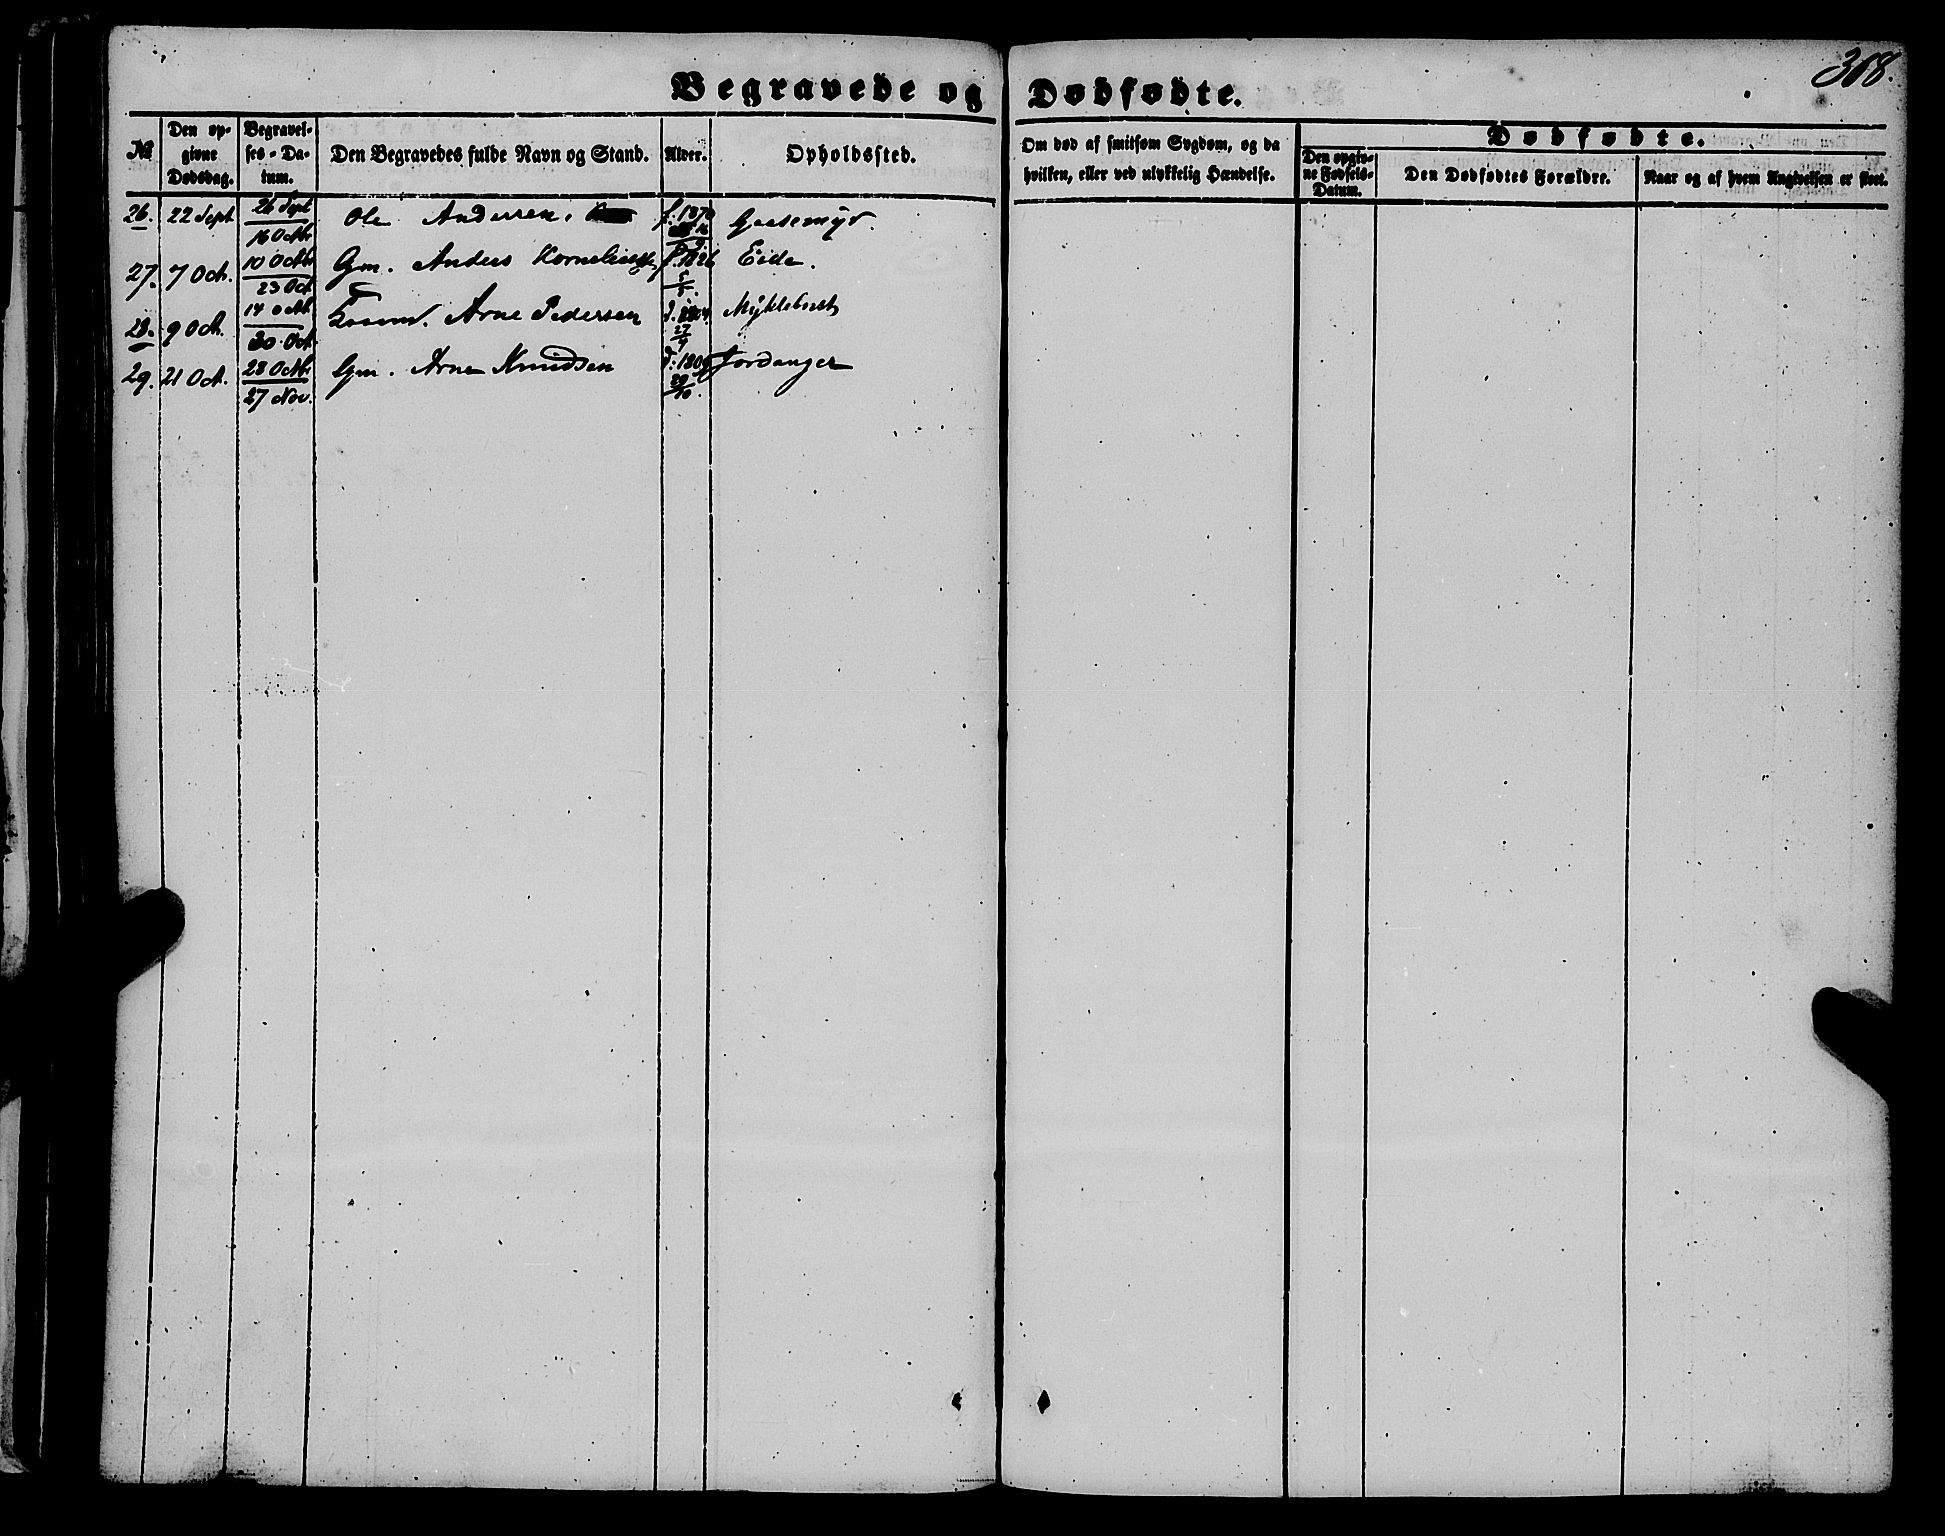 368.
Begravede og Dødfødte.
№ Den opgivne Dødsdag. Begravelses-Datum. Den Begravedes fulde Navn og Stand. Alder. Opholdssted. Om død af smitsom Sygdom, og da hvilken, eller ved ulykkelig Hændelse. Dødfødte. Den opgivne Fødsels-Datum. Den Dødfødtes Forældre. Naar og af hvem Angivelsen er skeet.
26. 22 Sept 26 Sept Ole Andersen. f. 1870
16 Octbr
27. 7 Oct. 10 Octbr Gm. Anders f. 1826 Eide.
23 Oct 5/5.
28. 9 Oct. 14 Octbr Arne Pedersen Myklebust
30 Oct 27/9
29. 21 Oct. 28 Octbr Gm. Arne Knudsen Jordanger
27 Nov.